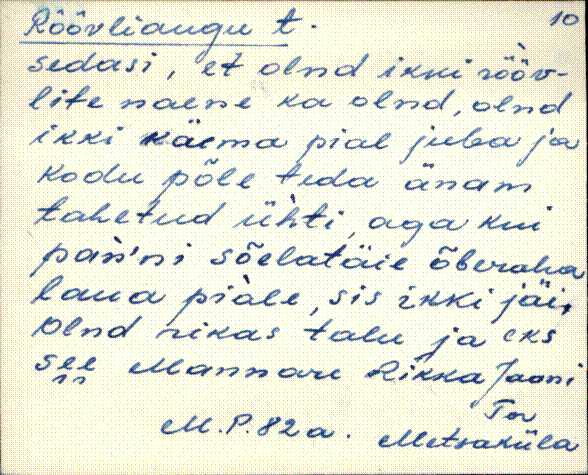 Röövliaugu t.
10
sedasi, et olnd ikki rööv-
lite naene ka olnd, olnd
ikki käema pial juba ja
kodu põle teda änam
tahetud ühti, aga kui
pan'ni sõelatäie õberaha
laua piale, sis ikki jäi,
Olnd rikas talu ja eks
see Mannare Rikka Jaani
M.P. 82 a. Metsaküla